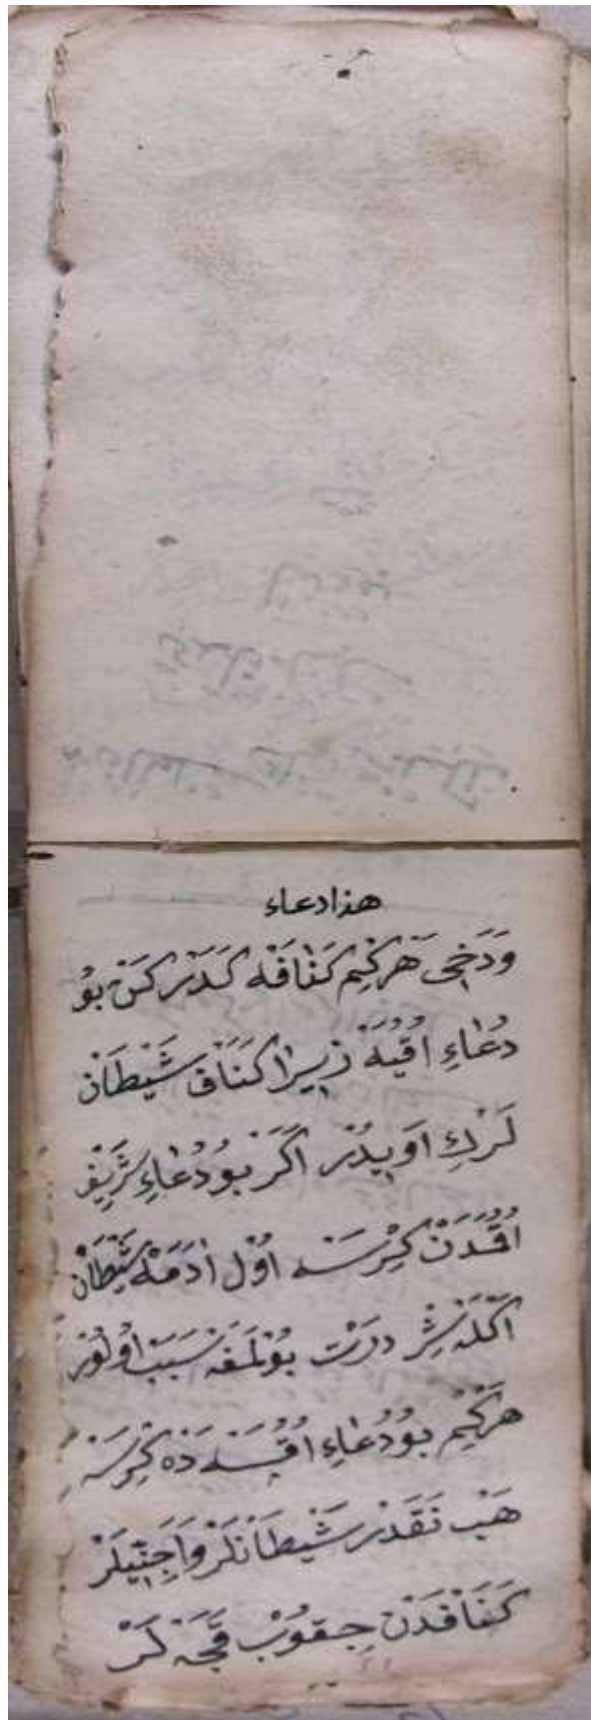 هذا دعاء
وَدَخِى هَرْكِيم كَنَافَه كَدَرْكَنْ بُو
دُعَاءِ اُقُيَه زِيرَا كَنَافْ شَيْطَانْ
لَرْكِ اَوِيدُرْ اَكَرْ بُو دُعَاءِ شَرِيفِ
اُقُمَدَنْ كِرْسَه اُوْل اٰدَمَه شَيْطَانْ
دَرْتْ بُولْمَغَه سَبَبْ اُولُوْر
هَرْكِيْم بُو دُعَاءِ اُقُسَه دَه كِرْسَه
هَبْ نَقَدَرْ شَيْطَانْلَرْ وَاَجِنِّيلَرْ
كَنَافْدَنْ جِقُوبْ قَجَرْلَرْ